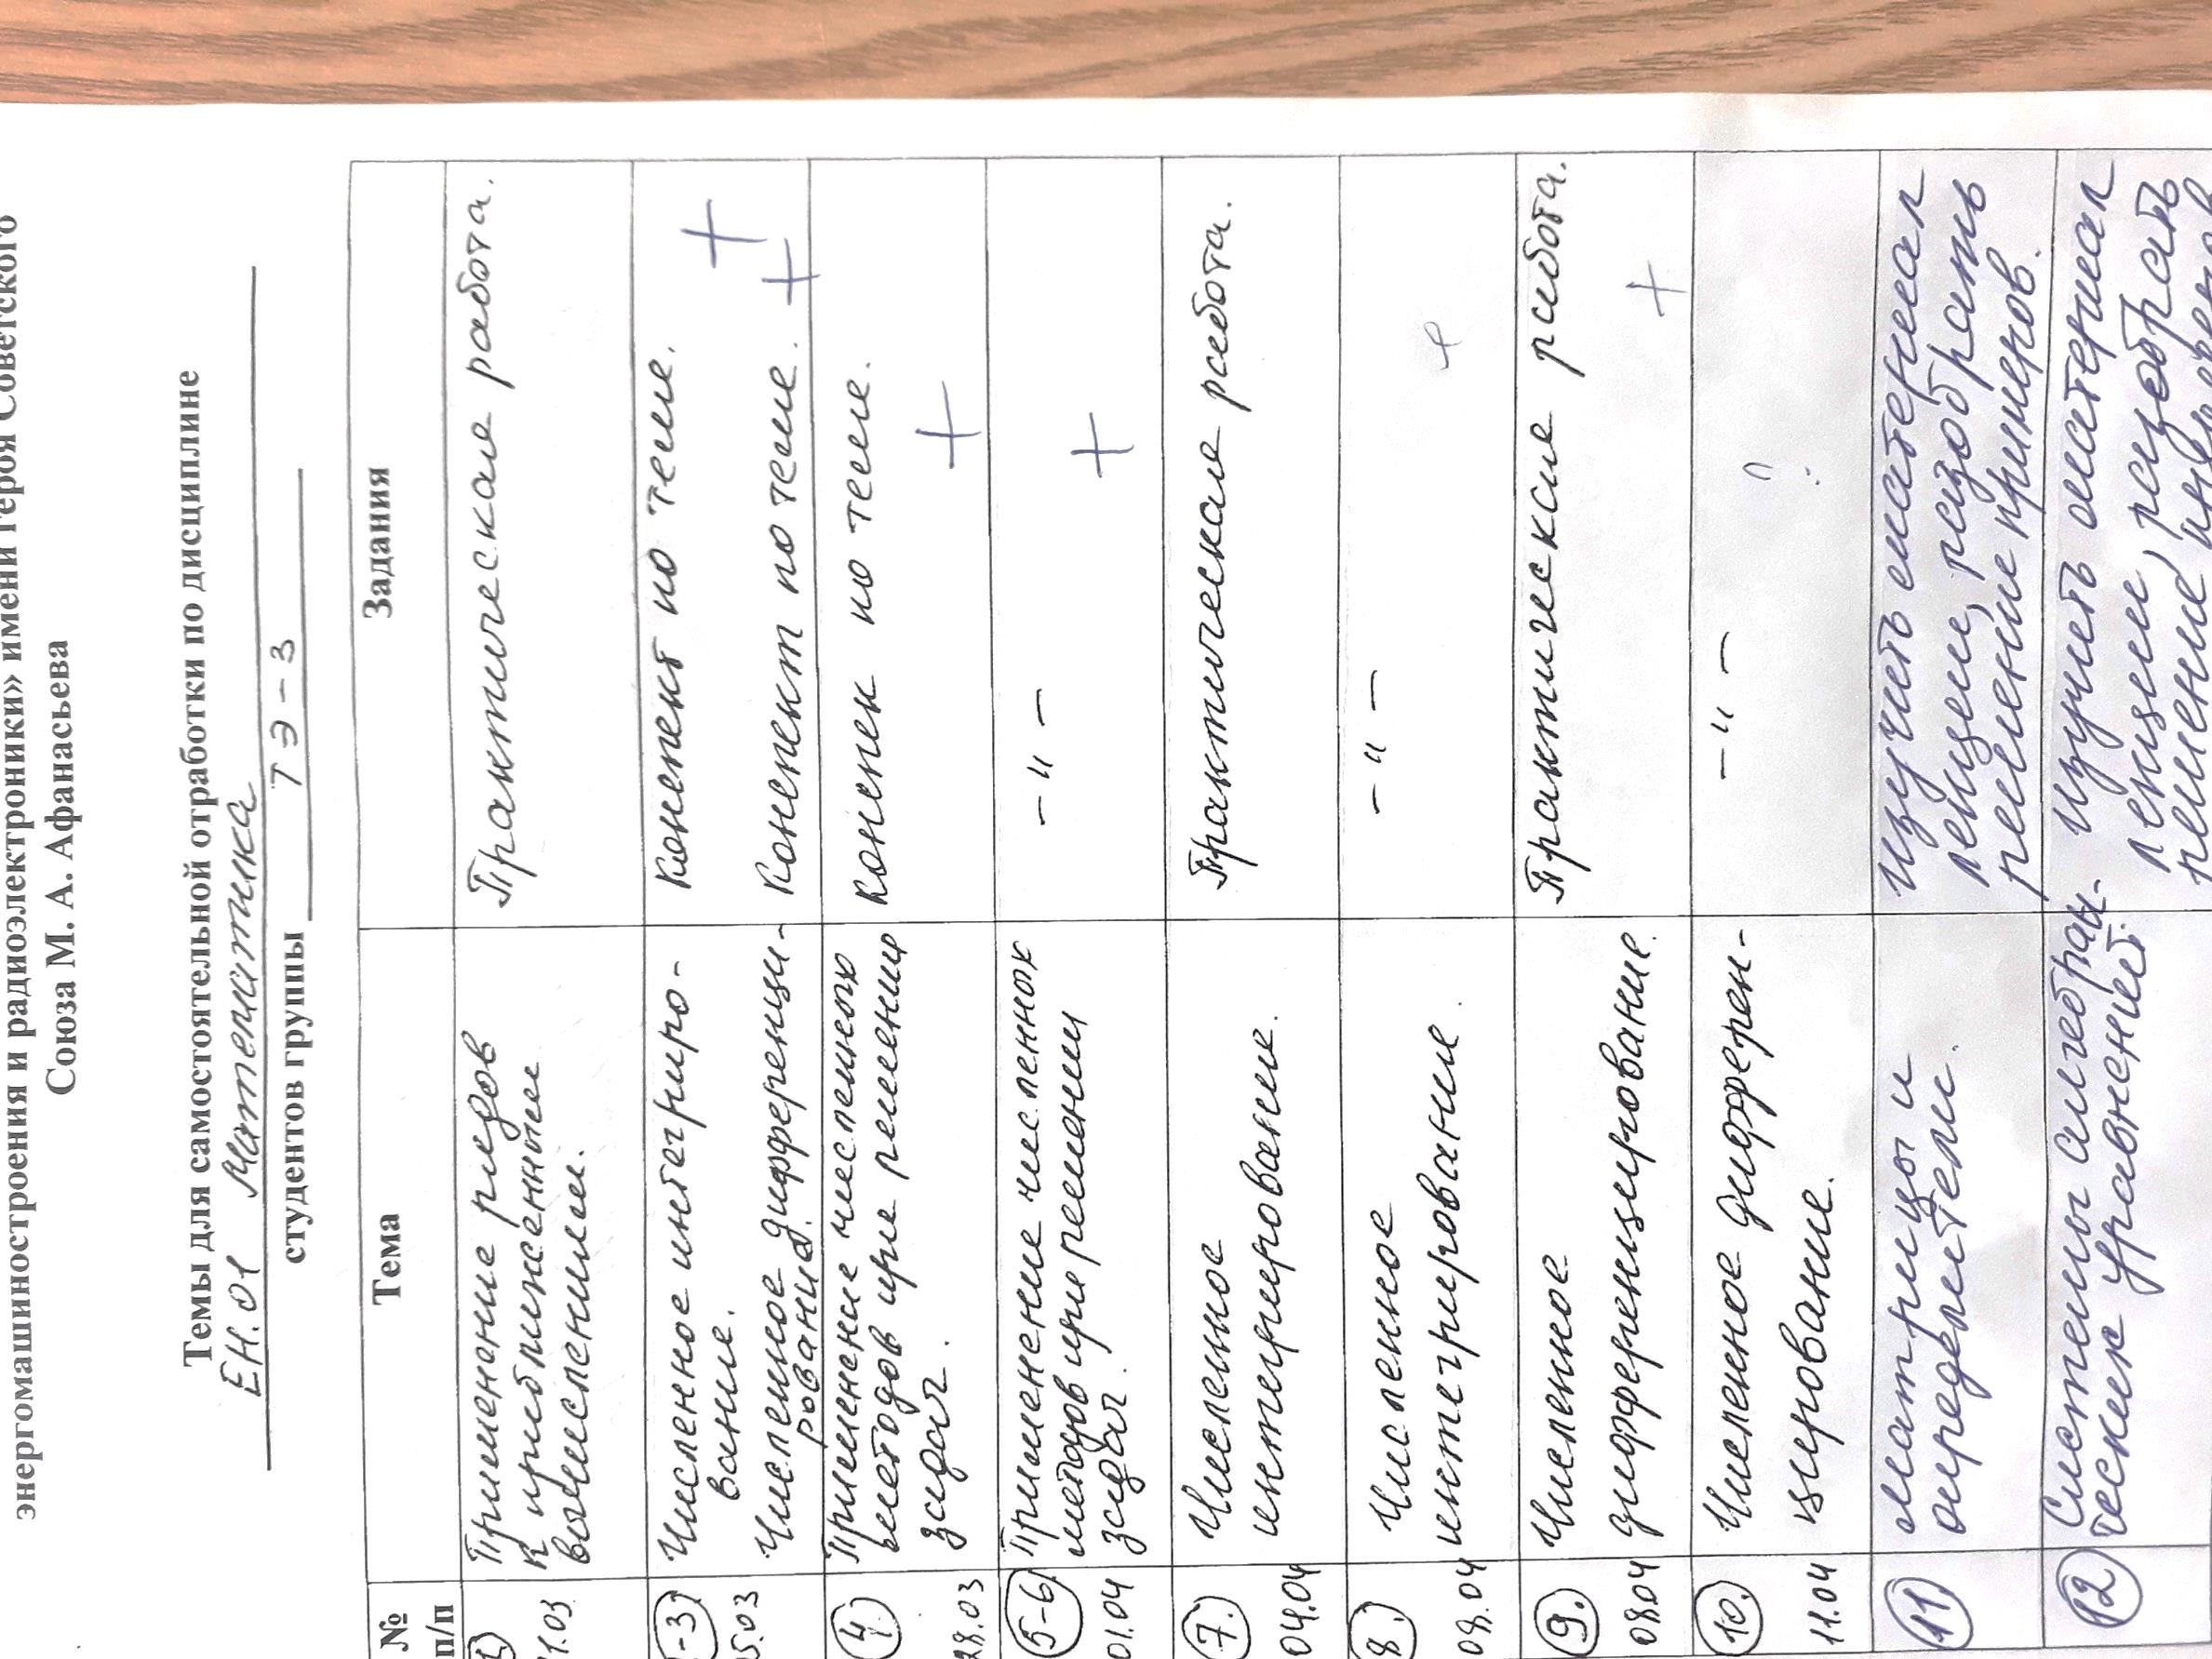 энергомашиностроения и радиоэлектроники» имени героя Советского
Союза М. А. Афанасьева
Темы для самостоятельной отработки по дисциплине
ЕН.01 Математика
студентов группы ТЭ-3
№ п/п Тема Задания
Применение рядов
к приближенным
вычислениям.
Практическая работа.
-3)
Численное интегриро-
вание.
Конспект по теме. +
Численное дифференци-
рование.
Конспект по теме. +
4
28.03
Применение численных
методов при решении
задач.
Конспек по теме.
+
5-6
01.04
Применение численных
методов при решении
задач.
– " –
+
7.
04.04
Численное
интегрирование.
Практическая работа.
8.
Численное
интегрирование.
– " –
9.
08.04
Численное
дифференцирование.
Практическая работа.
+
10.
11.04
Численное дифферен-
цирование.
– " –
11
Матрицы и
определители.
Изучить материал
лекции, разобрать
решение примеров.
12
Системы алгебраи-
ческих уравнений.
Изучить материал
лекции, разобрать
решение